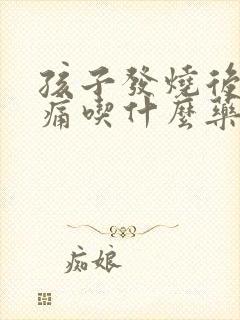 孩子發燒後
痛喫什麼藥
痴娘